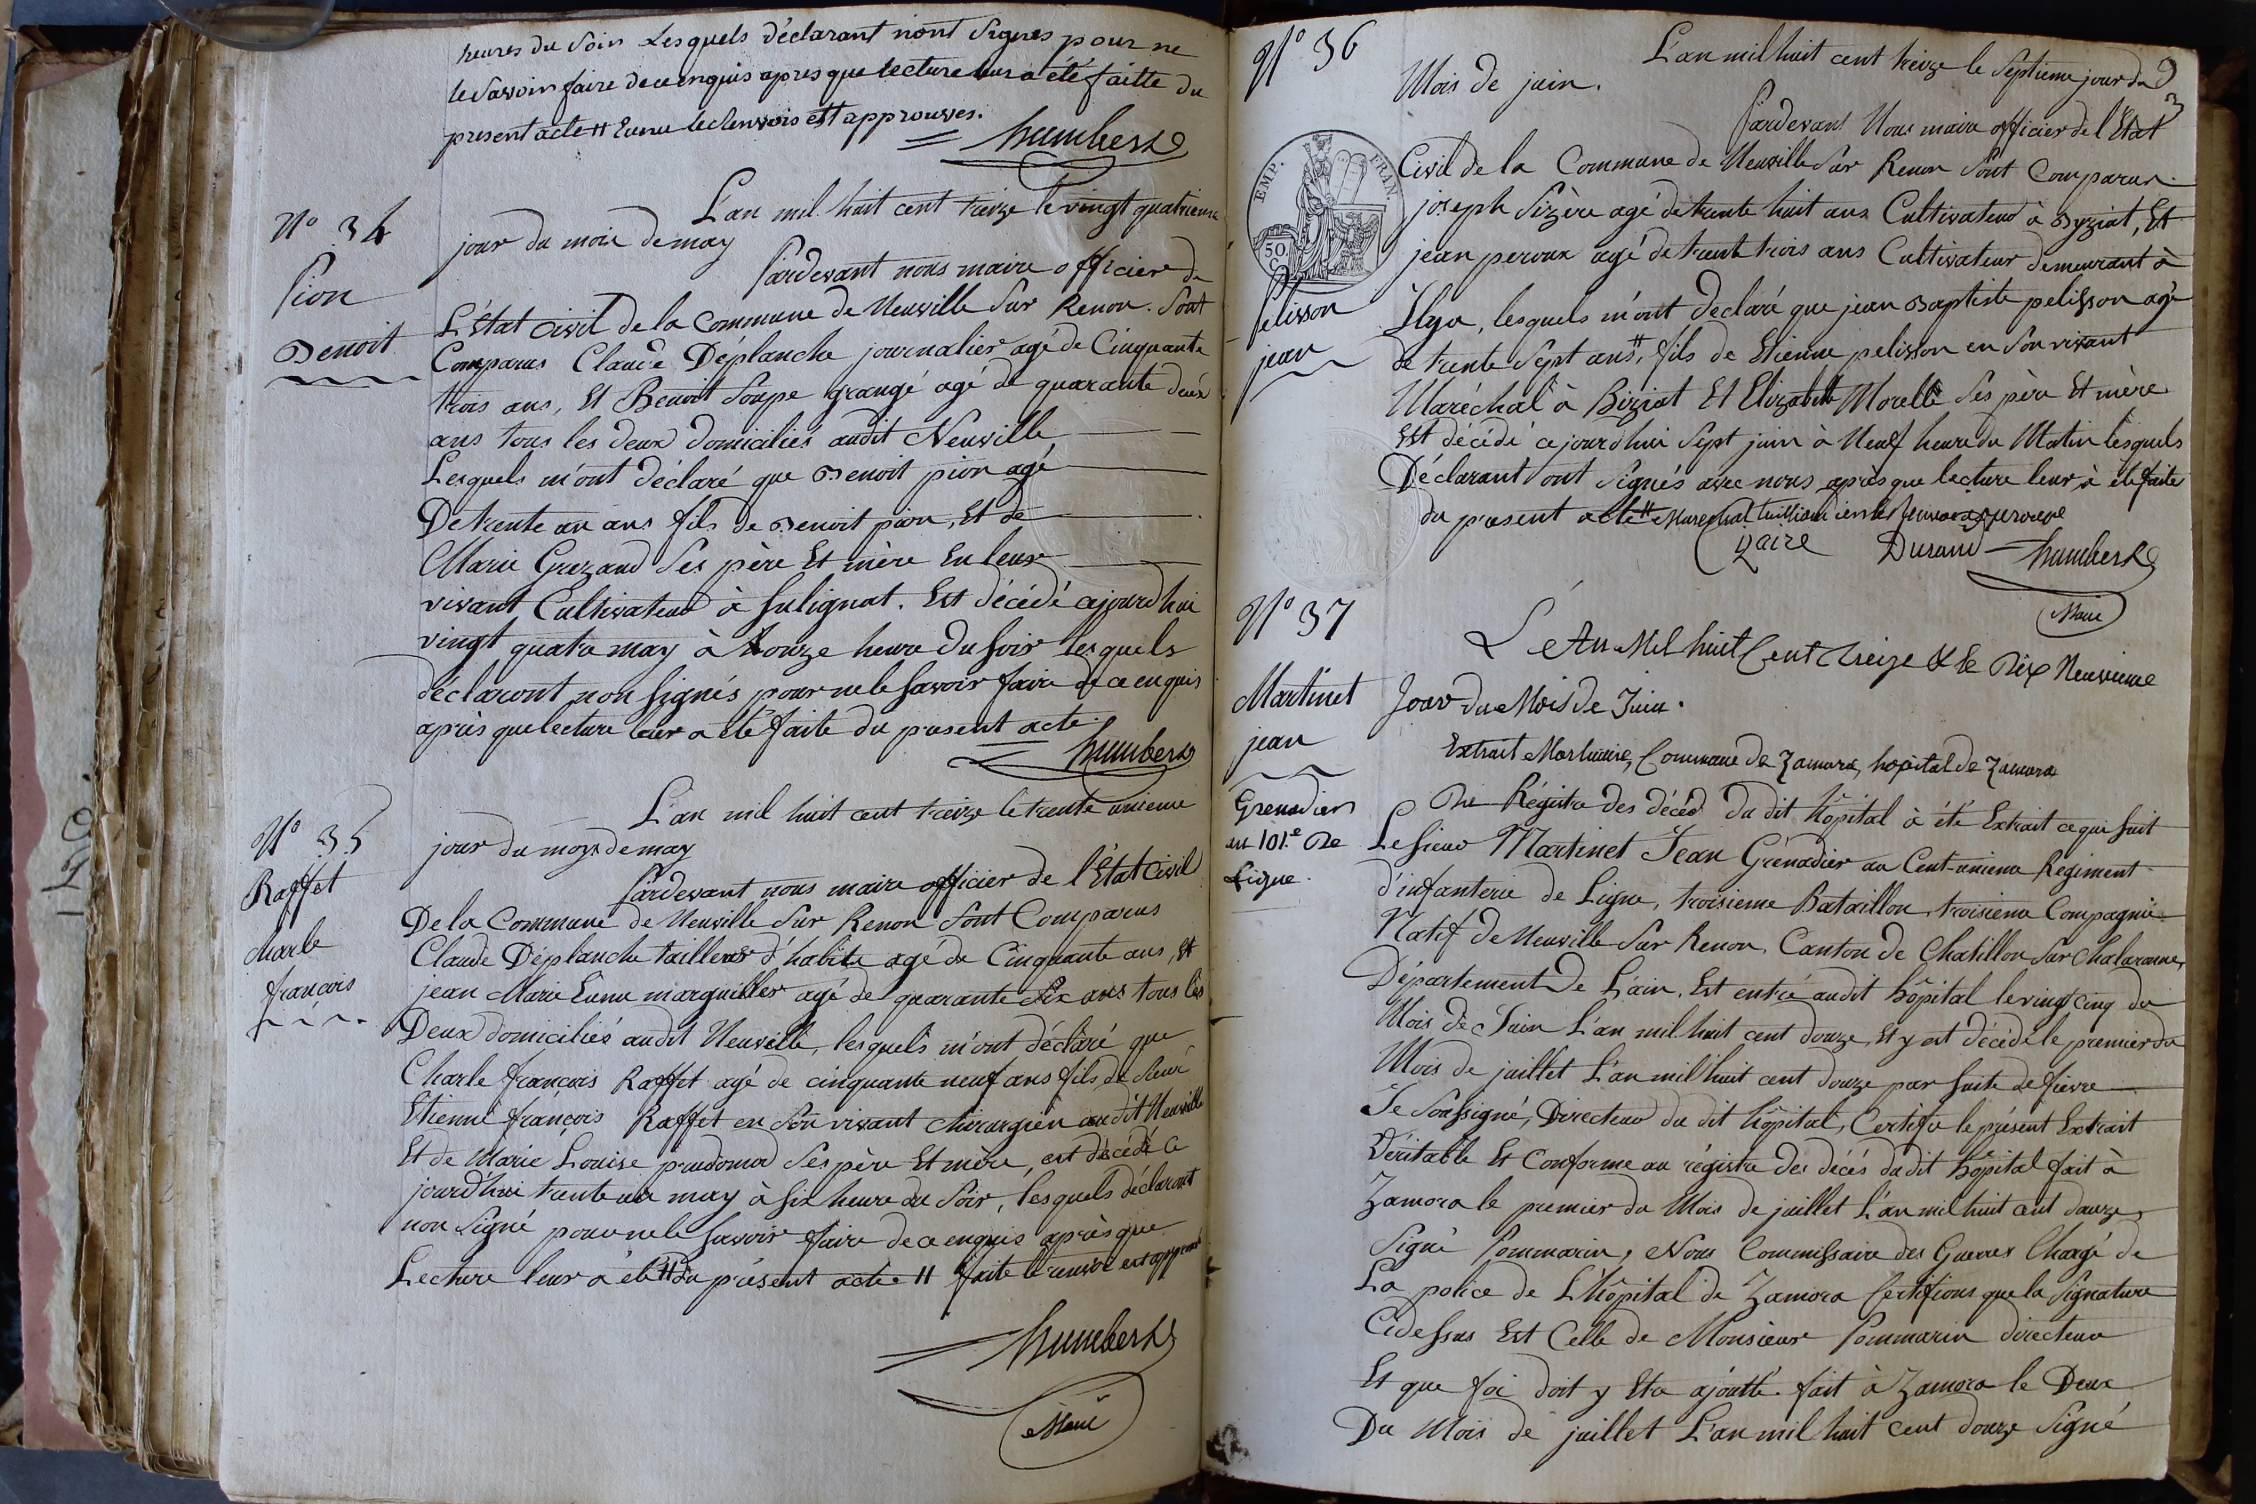 heures du Soir Lesquels déclarant nont Signes pour ne
le Savoir faire de ce enquis apres que lecture leur a été faitte du
present acte # Eunu le renvois est approuvés.
humbert
N° 34
Pion
Benoit
L'an mil huit cent treize le vingt quatrieme
jour du mois de may
Pardevant nous maire officier de
L'Etat Civil de la Commune de Neuville Sur Renon. Sont
Comparus Claude Déplanche journalier agé de Cinquante
trois ans, Et Benoit Soupe grangé agé de quarante deux
ans tous les deux domiciliés audit Neuville
Lesquels m'ont déclaré que Benoit pion agé
De trente un ans fils de Benoit pion, Et de
Marie Grezaud Ses père Et mère En leur
vivant Cultivateur à Sulignat. Est décédé ajourdhui
vingt quatre may à honze heure du Soir lesquels
déclaront non Signés pour ne le Savoir faire de ce enquis
après que lecture leur a été faite du present acte.
humbert
N° 35
Raffet
charle
françois
L'an mil huit cent treize le trente unieme
jour du moys de may
Pardevant nous maire officier de l'Etat Civil
De la Commune de Neuville Sur Renon Sont Comparus
Claude Déplanche tailleur d'habits agé de Cinquante ans, Et
jean Marie Eunu marguiller agé de quarante Six ans tous les
Deux domiciliés audit Neuville, lesquels m'ont déclaré que
Charle françois Raffet agé de cinquante neuf ans fils de Sieur
Etienne françois Raffet en Son vivant Chirurgien audit Neuville
Et de Marie Louise prudomod Ses père Et mère, est décédé ce
jourd'hui trente un may à Six heure du Soir, lesquels déclaront
non Signé pour ne le Savoir faire de ce enquis après que
Lecture leur a été # du présent acte # faite le renvoi est approuvé
humbert
Maire
N° 36
Pelisson
jean
EMP. FRAN.
50 C
L'an mil huit cent treize le Septieme jour du
Mois de juin.
Pardevant Nous maire officier de l'Etat
Civil de la Commune de Neuville Sur Renon Sont Comparus
joseph Sizère agé de trente huit ans Cultivateur à Byziat, Et
jean peroux agé de trente trois ans Cultivateur demeurant à
Illya, lesquels m'ont declaré que jean Baptiste pelisson agé
de trente Sept ans #, fils de Etienne pelisson en Son vivant
Maréchal à Biziat Et Elizabeth Morelle Ses père Et mère
Est décédé ce jourd'hui Sept juin à Neuf heure du Matin lesquels
Déclarant ont Signés avec nous après que lecture leur à été faite
du present acte # Marechal
Durand humbert
Maire
N° 37
Martinet
jean
Grenadier
au 101.e De
Ligne.
L'An Mil huit Cent Treize & le Dix Neuvieme
Jour du Mois De Juin.
Extrait Mortuaire, Commune de Zamora, hopital de Zamora
Du Régistre des décés du dit hôpital à été Extrait ce qui Suit
Le Sieur Martinet Jean Grénadier au Cent-unieme Regiment
d'infanterie de Ligne, troisieme Bataillon, troisieme Compagnie
Natif de Neuville Sur Renon, Canton de Chatillon Sur Chalaronne,
Département De L'ain, Est entré audit hôpital le vingt cinq du
Mois de Juin L'an mil huit cent douze, Et y est décédé le premier du
Mois de juillet L'an mil huit cent douze par Suite de fievre
Je Soussigné, Directeur du dit hôpital, Certifie le présent Extrait
Véritable Et Conforme au régistre des décés dudit hôpital fait à
Zamora le premier du Mois de juillet L'an mil huit cent douze
Signé Pommarin, Nous Commissaire des Guerres Chargé de
La police de L'hôpital de Zamora Certifions que la Signature
Cidessus Est Celle de Monsieur Pommarin directeur
Et que foi doit y Etre ajoutté fait à Zamora le Deux
Du Mois de juillet L'an mil huit cent douze Signé